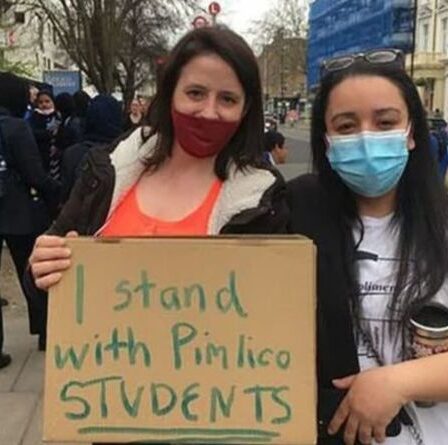 I stand
with Pimlico
STUDENTS